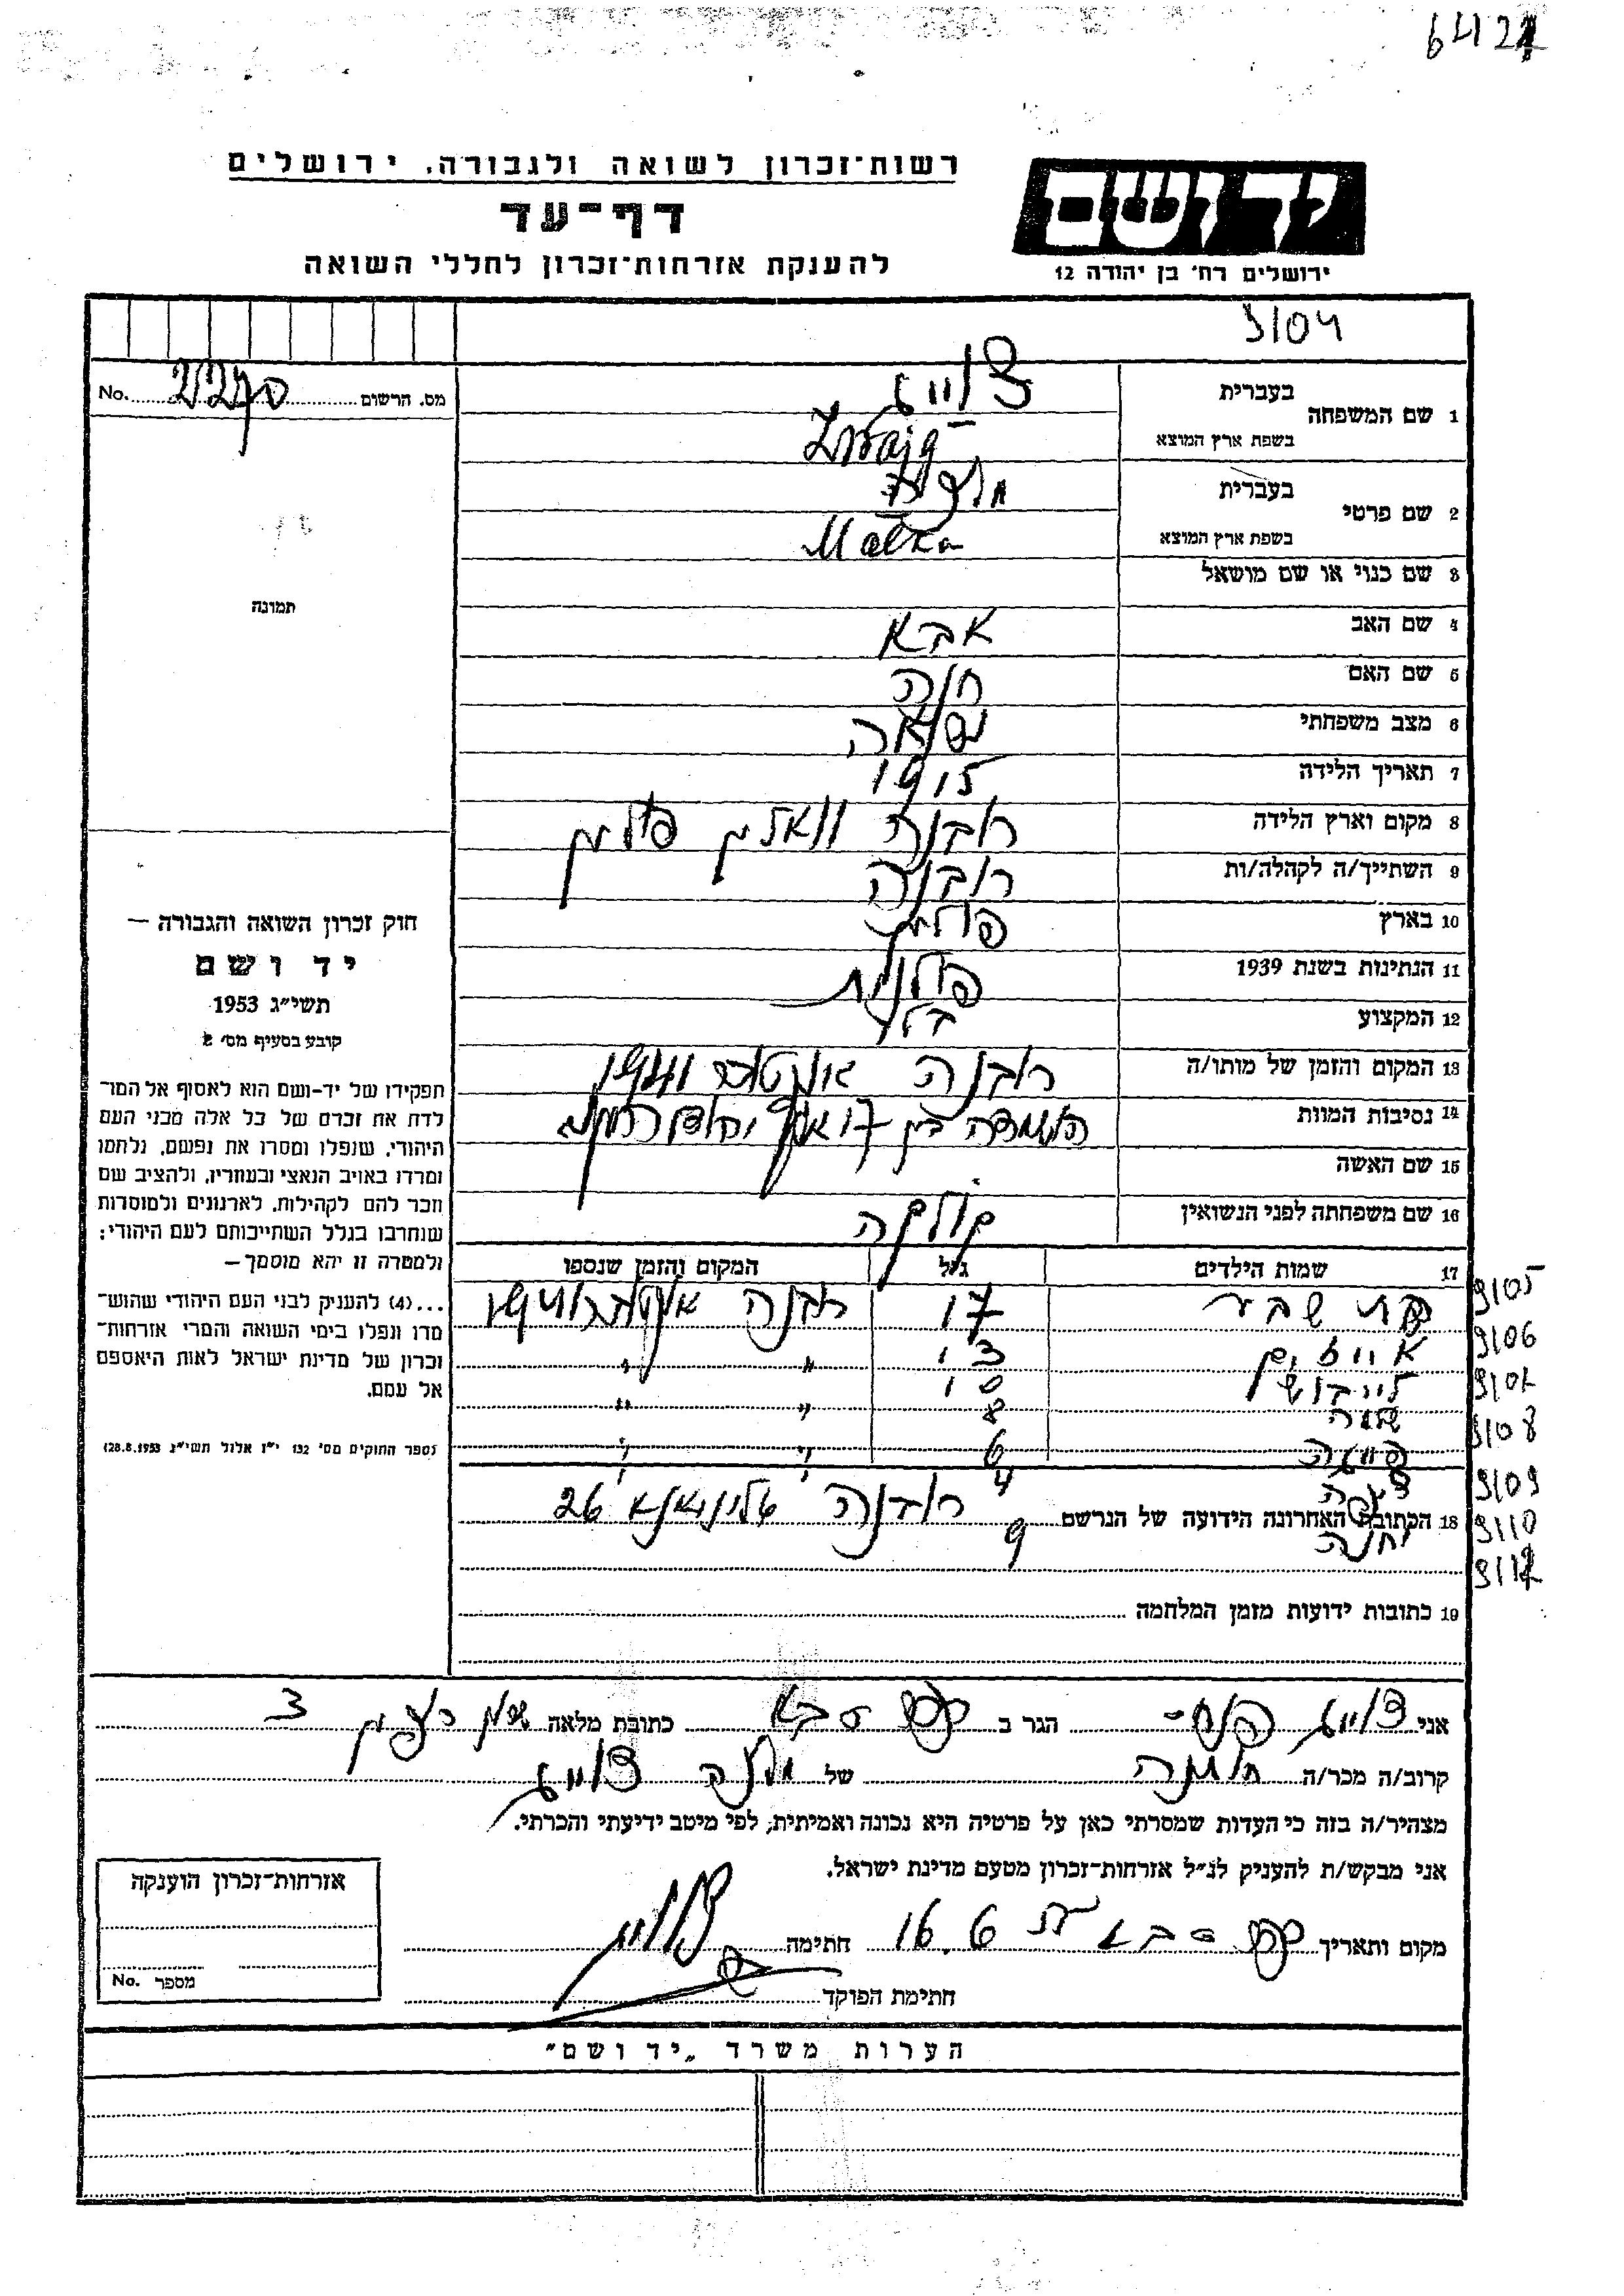 רשות־זכרון לשואה ולגבורה, ירושלים
דף־עד
להענקת אזרחות־זכרון לחללי השואה
יד ושם
ירושלים רח' בן יהודה 12
3104
מס. הרשום No.
1 שם המשפחה
בעברית צווייג
בשפת ארץ המוצא Zwajg
2 שם פרטי
בעברית מלכה
בשפת ארץ המוצא Malka
3 שם כנוי או שם מושאל
4 שם האב אבא
5 שם האם חנה
6 מצב משפחתי נשואה
7 תאריך הלידה 1915
8 מקום וארץ הלידה רובנה וואלין פולין
9 השתייך/ה לקהלה/ות רובנה
10 בארץ פולין
11 הנתינות בשנת 1939 פולנית
12 המקצוע
13 המקום והזמן של מותו/ה רובנה אוקטובר 1941
14 נסיבות המוות הושמדה בין 17 אלף יהודי רובנה
15 שם האשה
16 שם משפחתה לפני הנשואין
17 שמות הילדים גיל המקום והזמן שנספו
בת שבע 17 רובנה אוקטובר 1941 3105
13 " " 3106
לייבוש 10 " "
8 " " 3108
6 " "
4 3109
18 הכתובת האחרונה הידועה של הנרשם רובנה 26
וחנה 9 3110
19 כתובות ידועות מזמן המלחמה
תמונה
חוק זכרון השואה והגבורה —
יד ושם
תשי״ג 1953
קובע בסעיף מס׳ 2
תפקידו של יד־ושם הוא לאסוף אל המו־
לדת את זכרם של כל אלה מבני העם
היהודי, שנפלו ומסרו את נפשם, נלחמו
ומרדו באויב הנאצי ובעוזריו, ולהציב שם
וזכר להם לקהילות, לארגונים ולמוסדות
שנחרבו בגלל השתייכותם לעם היהודי;
ולמטרה זו יהא מוסמך —
...(4) להעניק לבני העם היהודי שהוש־
מדו ונפלו בימי השואה והמרי אזרחות־
זכרון של מדינת ישראל לאות היאספם
אל עמם.
(ספר החוקים מס׳ 132 י״ז אלול תשי״ג 28.8.1953)
אני צווייג הגר ב כפר סבא כתובת מלאה 3
קרוב/ה מכר/ה של מלכה צווייג
מצהיר/ה בזה כי העדות שמסרתי כאן על פרטיה היא נכונה ואמיתית, לפי מיטב ידיעתי והכרתי.
אני מבקש/ת להעניק לנ״ל אזרחות־זכרון מטעם מדינת ישראל.
מקום ותאריך כפר סבא 16.6 חתימה
חתימת הפוקד
אזרחות־זכרון הוענקה
מספר No.
הערות משרד „יד ושם״